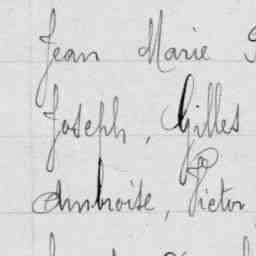 Jean Marie
Joseph, Gilles
Ambroise, Victor